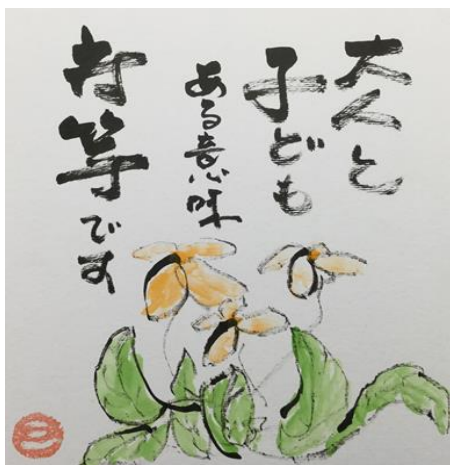 大人と
子ども
ある意味
対等です